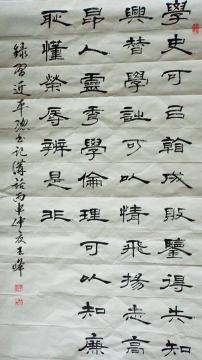 學史可以看成敗鑒得失知
興替學詩可以情飛揚志高
昂人靈秀學倫理可以知廉
恥懂榮辱辨是非
錄習近平總書記講話丙申仲夏王